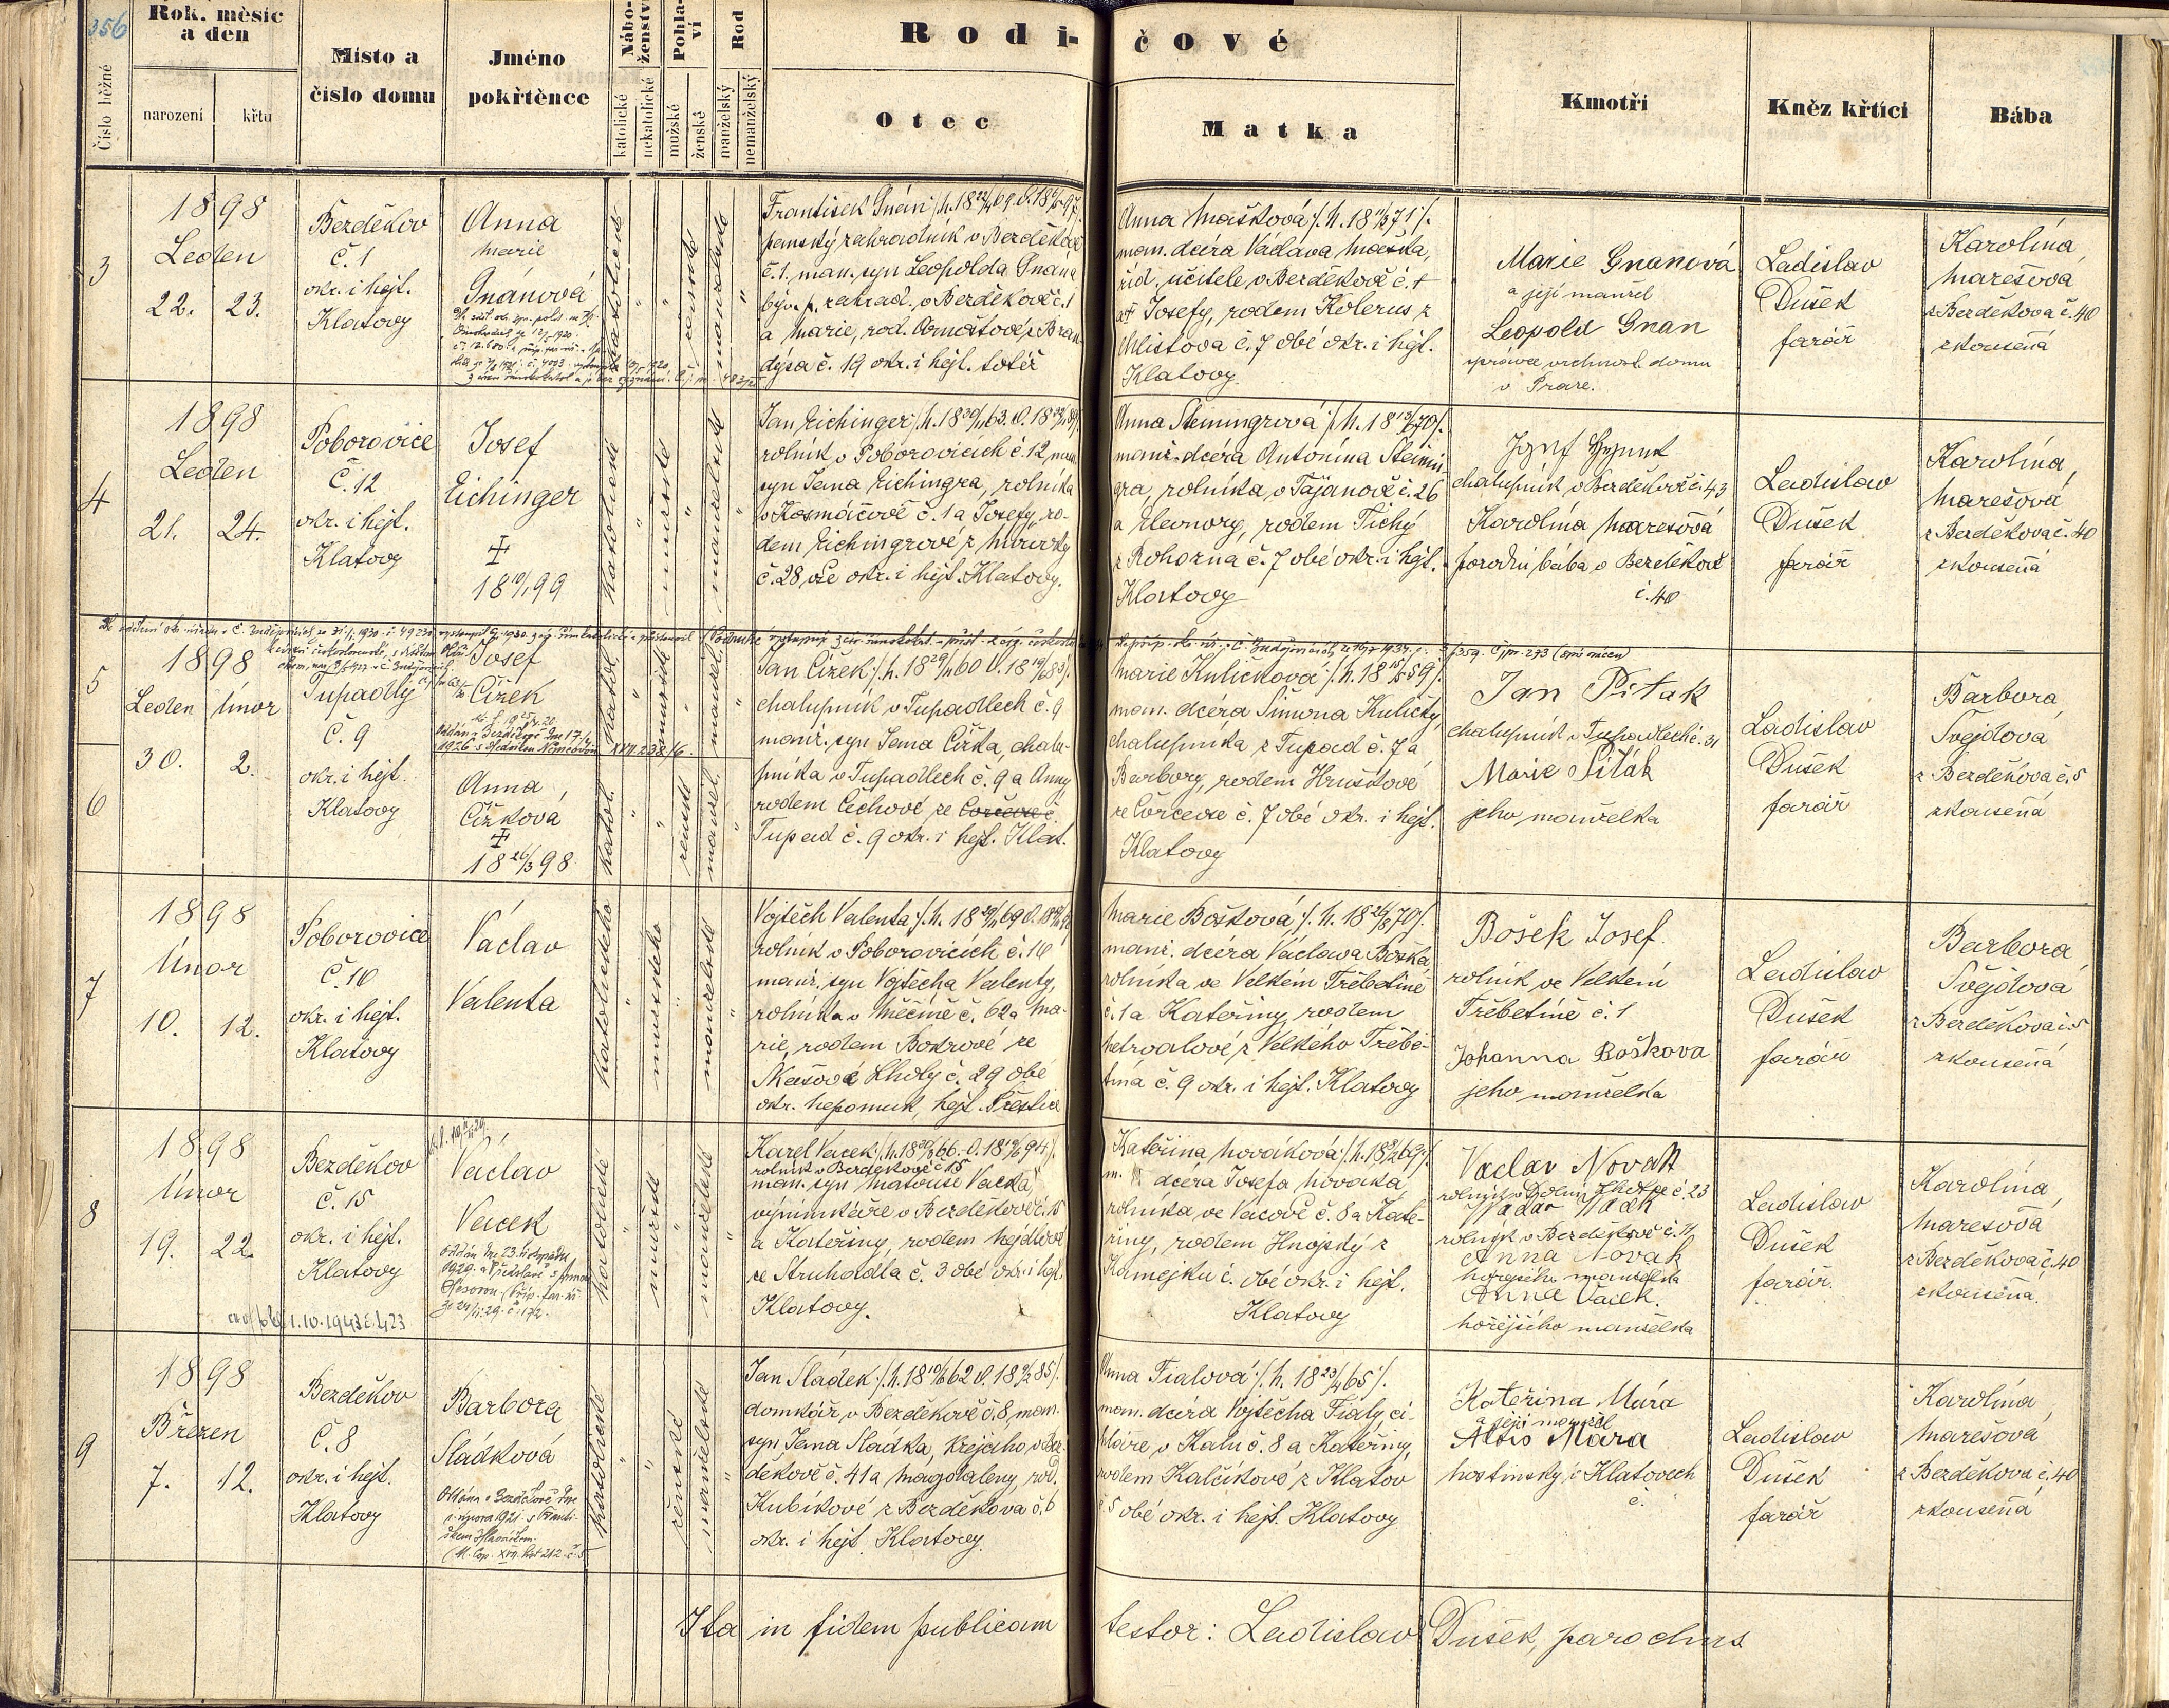 356
Číslo běžné
Rok, měsíc
a den
narození
křtu
Místo a
číslo domu
Jméno
pokřtěnce
Nábo-
ženství
katolické
nekatolické
Pohla-
ví
mužské
ženské
Rod
manželský
nemanželský
Rodi-
čové
Otec
Matka
Kmotři
Kněz křtící
Bába
3
1898
Leden
22. 23.
Bezděkov
č. 1
okr. i hejt.
Klatovy
Anna
Marie
Gnánová
katolické
ženské
manželské
František Gnán
panský zahradník v Bezděkově
č. 1, man. syn Leopolda Gnána
býv. p. zahrad. v Bezděkově č. 1
a Marie, rod. Arnoštové z Bran-
dýsa č. 19 okr. i hejt. totéž
Anna Mašková /: n. 18 71 :/
man. dcera Václava Maška,
říd. učitele v Bezděkově č.
a Josefy, rodem Kolerus z
Chlistova č. 7 obé okr. i hejt.
Klatovy.
Marie Gnanová
a její manžel
Leopold Gnan
správce vrchnost. domu
v Praze.
Ladislav
Dušek
farář
Karolína
Marešová
z Bezděkova č. 40
zkoušená
4
1898
Leden
21. 24.
Poborovice
Č. 12
okr. i hejt.
Klatovy
Josef
Eichinger
‡
18 19/1 99
katolické
mužské
manželské
Jan Eichinger
rolník v Poborovicích č. 12, man.
syn Jana Eichingra, rolníka
v Kosmáčově č. 1 a Josefy, ro-
dem Eichingrové z
č. 28, vše okr. i hejt. Klatovy.
Anna Steiningrová /: n. 18 70 :/
manž. dcera Antonína Steinin-
gra, rolníka v Tajanově č. 26
a Eleonory, rodem Tichý
z Rohozna č. 7 obé okr. i hejt.
Klatovy
chalupník v Bezděkově č. 43
Karolína Marešová
porodní bába v Bezděkově
č. 40
Ladislav
Dušek
farář
Karolína,
Marešová
z Bezděkova č. 40
zkoušená
5
1898
Leden Únor
30. 2.
Tupadly
č. 9
okr. i hejt.
Klatovy
Josef
Čížek
katol.
mužské
manžel.
Jan Čížek
chalupník v Tupadlech č. 9
manž. syn Jana Čížka, chalu-
pníka v Tupadlech č. 9 a Anny
rodem Čechové ze Čorčovic č.
Tupad č. 9 okr. i hejt. Klat.
Marie Kuličková /: n. 18 59 :/
man. dcera Šimona Kuličky,
chalupníka z Tupad č. 7 a
Barbory, rodem Hruškové
č. 7 obé okr. i hejt.
Klatovy
Jan Piťak
chalupník v Tupadlech č. 31
Marie Piťák
jeho manželka
Ladislav
Dušek
farář
Barbora
Švejdová
z Bezděkova č. 5
zkoušená
6
Anna
Čížková
‡
18 26/3 98
katol.
ženské
manžel.
7
1898
Únor
10. 12.
Poborovice
Č. 16
okr. i hejt.
Klatovy
Václav
Valenta
katolického
mužského
manželské
Vojtěch Valenta
rolník v Poborovicích č. 16
manž. syn Vojtěcha Valenty,
rolníka v Měčíně č. 62 a Ma-
rie, rodem Bokrové ze
Lhoty č. 29 obé
okr. Nepomuk, hejt. Přeštice
Marie Bošková /: n. 18 70 :/
manž. dcera Václava Boška
rolníka ve Velkém Třebetíně
č. 1 a Kateřiny, rodem
z Velkého Třebe-
tína č. 9 okr. i hejt. Klatovy
Bošek Josef.
rolník ve Velkém
Třebetíně č. 1
Johanna Boškova
jeho manželka
Ladislav
Dušek
farář
Barbora
Švejdova
z Bezděkova č. 5
zkoušená
8
1898
Únor
19. 22.
Bezděkov
č. 15
okr. i hejt.
Klatovy
1.10.1943 č. 423
Václav
Vacek
oddán dne 23. listopadu
1929
katolické
mužské
manželské
Karel Vacek
rolník v Bezděkově č. 15
man. syn Matouše Vacka,
výminkáře v Bezděkově č. 15
a Kateřiny, rodem Hejdkové
ze Struhadla č. 3 obé okr. i hejt.
Klatovy.
Kateřina Nováková /: n. 18 69 :/
m. dcera Josefa Nováka,
rolníka ve Vacově č. 8 a Kate-
řiny, rodem Hnojský z
Kamejku č. obé okr. i hejt.
Klatovy
Vaclav Novak
č. 23
rolník v Bezděkově č. 11
Anna Novak
hořejšího manželka
Anna Vacek.
hořejšího manželka
Ladislav
Dušek
farář.
Karolína,
Marešová
z Bezděkova č. 40
zkoušená.
9
1898
Březen
7. 12.
Bezděkov
Č. 8
okr. i hejt.
Klatovy
Barbora
Sládková
Oddána v Bezděkově dne
1. února 1921 s Franti-
škem
katolické
ženské
manželské
Jan Sládek
domkář v Bezděkově č. 8, man.
syn Jana Sládka, krejčího v Bez-
děkově č. 41 a Magdaleny, rod.
Kubíkové z Bezděkova č. 6
okr. i hejt. Klatovy.
Anna Fialová /: n. 18 23/4 65 :/
man. dcera Vojtěcha Fialy, ci-
hláře v Kalu č. 8 a Kateřiny,
rodem Kalčíkové z Klatov
č. 5 obé okr. i hejt. Klatovy
Kateřina Mára
a její manžel
Alois Mára
hostinský v Klatovech
č.
Ladislav
Dušek
farář
Karolína
Marešová
z Bezděkova č. 40
zkoušená
Ita in fidem publicam testor: Ladislav Dušek, parochus